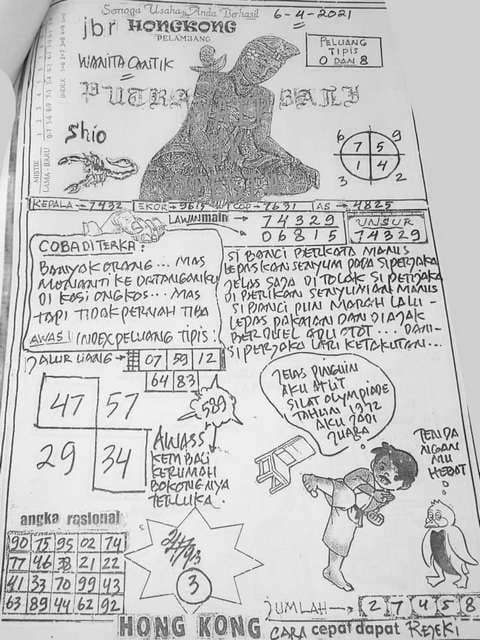 Semoga Usaha Anda Berhasil
6-4-2021
jbr HONGKONG
PALEMBANG
PELUANG
TIPIS
0 DAN 8
WANITA CANTIK
PUTRA BALI
Shio
MISTIK
LAMA - BARU
INDEX
6 9
7 5
1 4
3 2
KEPALA → 7432 EKOR → 9615 COP → 7631 AS → 4825
LAWAN main → 7 4 3 2 9
0 6 8 1 5
UNSUR
74329
COBA DITERKA:
BANYAK ORANG... MAS
MENANTI KEDATANGANKU
DI KASI ONGKOS... MAS
TAPI TIDAK PERNAH TIBA
AWAS! INDEX PELUANG TIPIS:
SI BANCI BERKATA MANIS
LEPASKAN SENYUM PADA SI PERJAKA
JELAS SAJA DI TOLAK SI PERJAKA
DI BERIKAN SENYUMIAN MANIS
SI BANCI PUN MARAH LALU -
LEPAS PAKAIAN DAN DIAJAK
BERDUEL ADU OTOT... DAN -
SI PERJAKA LARI KETAKUTAN...
JALUR UANG → 07 59 12
64 83
589
47 57
29 34
AWASS
KEMBALI
KERUMAH
BOKONGNYA
TERLUKA.
JELAS PINGUIN
AKU ATLIT
SILAT OLYMPIADE
TAHUN 1972
AKU JADI
JUARA
TENDA
NGAN
MU
HEBAT
angka rasional
90 75 95 02 74
77 46 38 21 22
41 33 70 99 43
63 89 44 62 92
3
JUMLAH → 2 7 4 5 8
HONG KONG CARA cepat dapat REJEKI